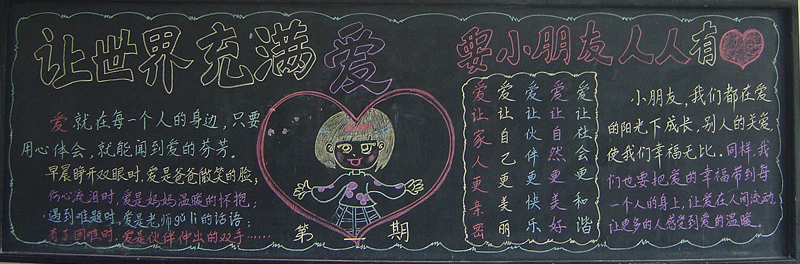 让世界充满爱
爱就在每一个人的身边,只要
用心体会,就能闻到爱的芬芳。
早晨睁开双眼时,爱是爸爸微笑的脸;
伤心流泪时,爱是妈妈温暖的怀抱;
遇到难题时,爱是老师gǔ lì的话语;
有了困难时,爱是伙伴伸出的双手……
第 期
要小朋友人人有
爱让家人更亲密
爱让自己更美丽
爱让伙伴更快乐
爱让自然更美好
爱让社会更和谐
小朋友,我们都在爱
的阳光下成长,别人的关爱,
使我们幸福无比。同样,我
们也要把爱的幸福带到每
一个人的身上,让爱在人间流动,
让更多的人感受到爱的温暖。